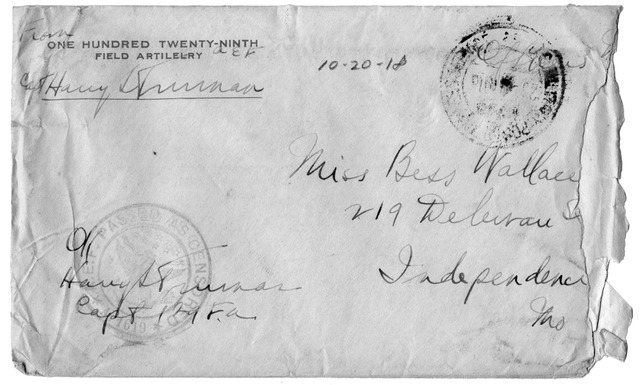 From
ONE HUNDRED TWENTY-NINTH
FIELD ARTILLERY
AEF
Capt Harry S Truman
10-20-18
Miss Bess Wallace
219 Delaware St
Independence
Mo
OK
Harry S Truman
Capt 129 F.A.
PASSED AS CENSORED